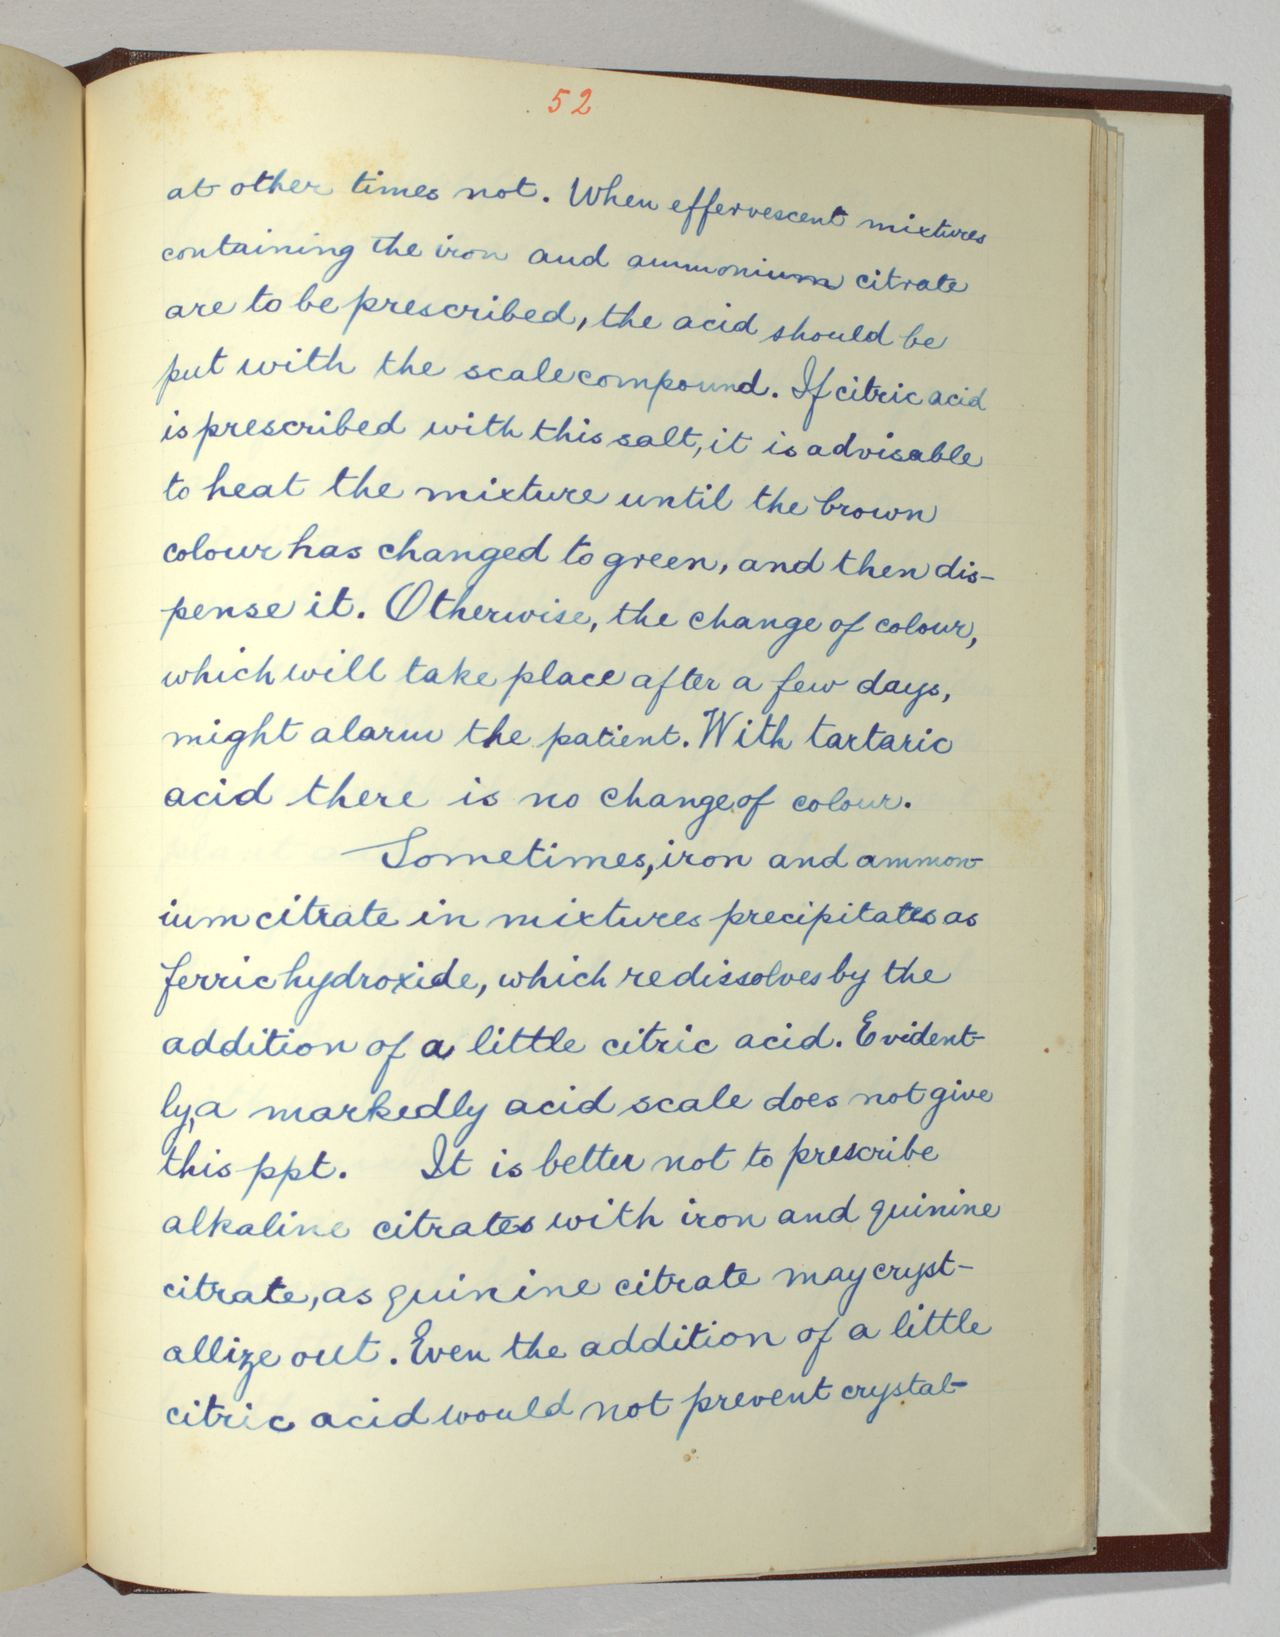 52
at other times not. When effervescent mixtures
containing the iron and ammonium citrate
are to be prescribed, the acid should be
put with the scale compound. If citric acid
is prescribed with this salt, it is advisable
to heat the mixture until the brown
colour has changed to green, and then dis-
pense it. Otherwise, the change of colour,
which will take place after a few days,
might alarm the patient. With tartaric
acid there is no change of colour.
Sometimes, iron and ammon-
ium citrate in mixtures precipitates as
ferric hydroxide, which redissolves by the
addition of a little citric acid. Evident-
ly, a markedly acid scale does not give
this ppt. It is better not to prescribe
alkaline citrates with iron and quinine
citrate, as quinine citrate may cryst-
allize out. Even the addition of a little
citric acid would not prevent crystal-